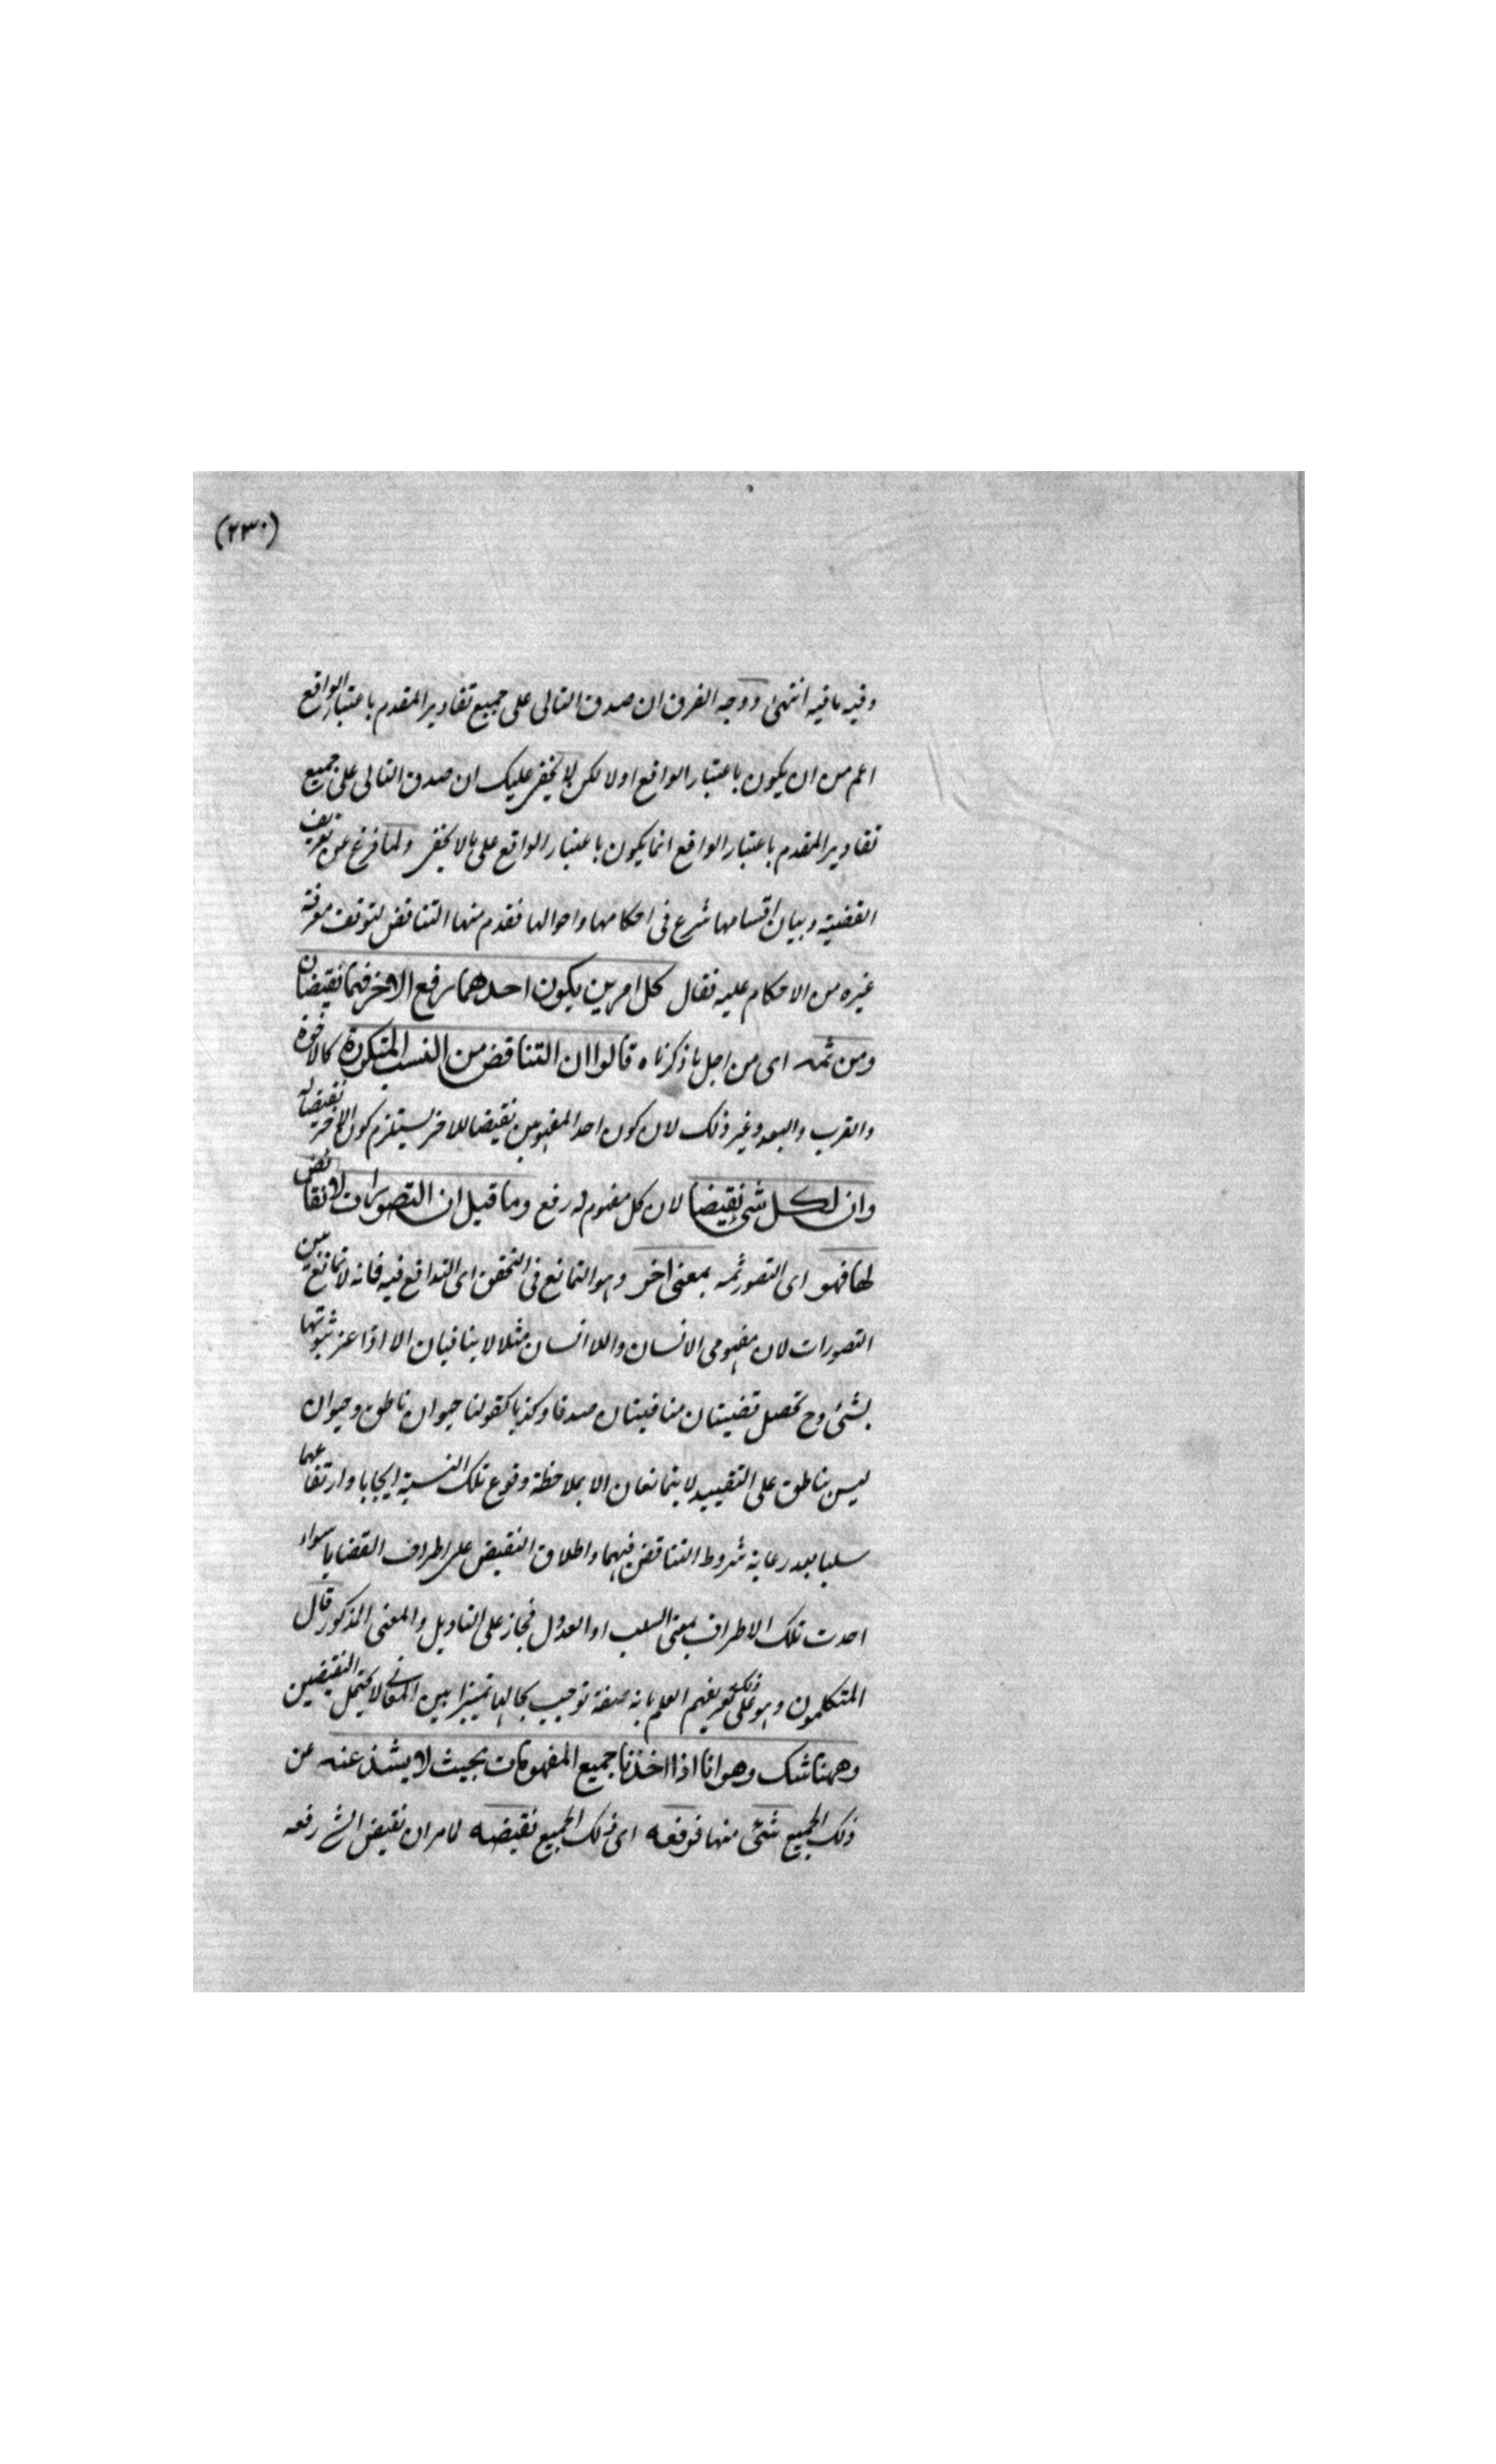 (٢٣٠)
وفيه ما فيه انتهى ووجه الفرق ان صدق التالى على جميع تقادير المقدم باعتبار الواقع
اعم من ان يكون باعتبار الواقع اولا لكن لا يخفى عليك ان صدق التالى على جميع
تقادير المقدم باعتبار الواقع انما يكون باعتبار الواقع على ما لا يخفى ولما فرغ عن تعريف
القضية وبيان اقسامها شرع فى احكامها واحوالها فقدم منها التناقض لتوقف معرفة
غيره من الاحكام عليه فقال كل امرين يكون احدهما رفع الاخر فهما نقيضان
ومن ثمه اى من اجل ما ذكرناه قالوا ان التناقض من النسب المتكررة كالاخوة
والقرب والبعد وغير ذلك لان كون احد المفهومين نقيضا للاخر يستلزم كون الاخر نقيضا له
وان لكل شئ نقيضا لان كل مفهوم له رفع وما قيل ان التصورات لا نقائض
لها فهو اى التصور ثمه بمعنى اخر وهو التمانع فى التحقق اى التدافع فيه فانه لا تمانع بين
التصورات لان مفهومى الانسان واللاانسان مثلا لا ينافيان الا اذا اعتبر ثبوتها
بشئ وح تحصل قضيتان منافيتان صدقا وكذبا كقولنا حيوان ناطق وحيوان
ليس بناطق على التقييد لا يتمانعان الا بملاحظة وقوع تلك النسبة ايجابا وارتفاعها
سلبا بعد رعاية شروط التناقض فيهما واطلاق النقيض على اطراف القضايا سواء
احدت تلك الاطراف بمعنى السلب او العدول فجاز على التاويل والمعنى المذكور قال
المتكلمون وهو على ذلك تعريفهم العلم بانه صفة توجب بحالها تميزا بين المعانى لا يحتمل النقيضين
وههنا شك وهو انا اذا اخذنا جميع المفهومات بحيث لا يشذ عنه عن
ذلك الجميع شئ منها فرفعه اى ذلك الجميع نقيضه لما مر ان نقيض الشئ رفعه